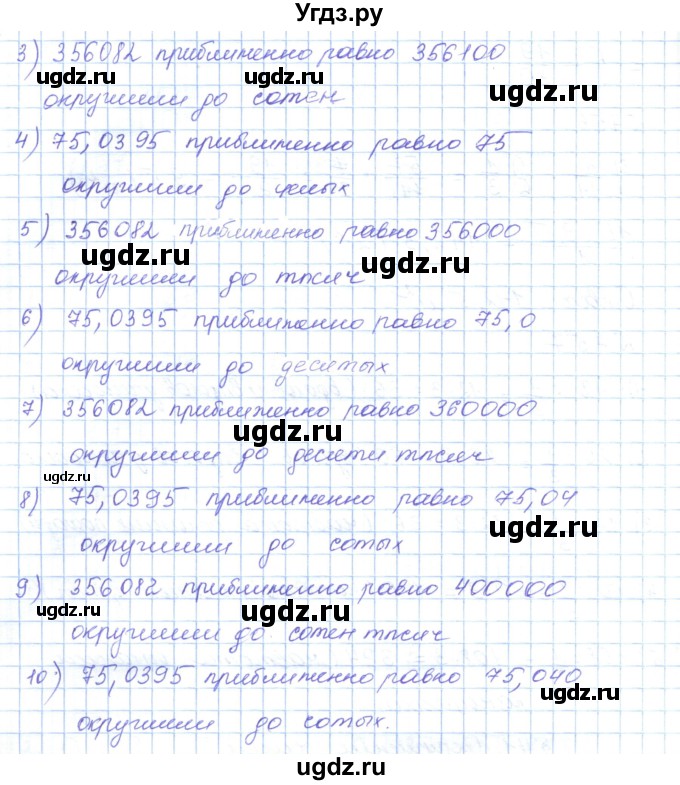 Угдз.ру
3) 356082 приближенно равно 356100
ugdz.ru ugdz.ru ugdz.ru
округлили до сотен
4) 75,0395 приближенно равно 75
округлили до целых
5) 356082 приближенно равно 356000
ugdz.ru ugdz.ru
округлили до тысяч
6) 75,0395 приближенно равно 75,0
округлили до десятых
7) 356082 приближенно равно 360000
ugdz.ru
округлили до десяти тысяч
ugdz.ru
8) 75,0395 приближенно равно 75,04
ugdz.ru
округлили до сотых
9) 356082 приближенно равно 400000
ugdz.ru ugdz.ru
округлили до сотен тысяч
10) 75,0395 приближенно равно 75,040
ugdz.ru
округлили до сотых.
ugdz.ru